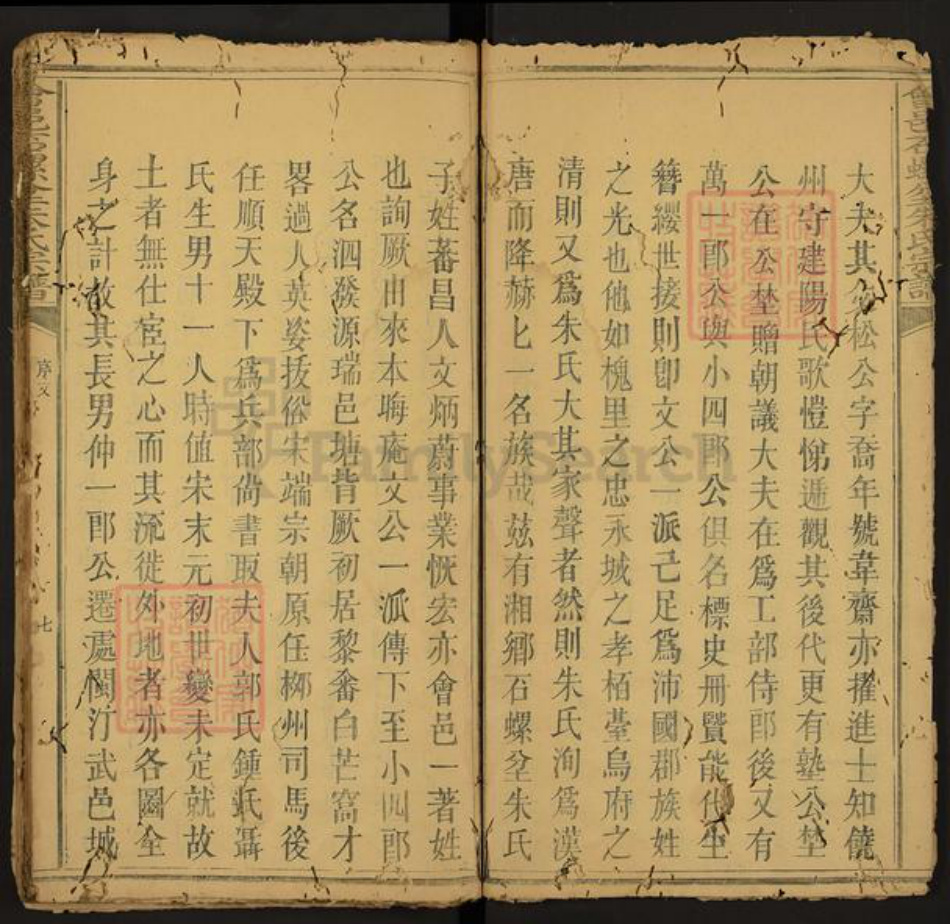 大夫其父松公字喬年號韋齋亦擢進士知饒
州守建陽民歌愷悌遞觀其後代更有塾公埜
公在公埜贈朝議大夫在爲工部侍郎後又有
萬一郎公與小四郎公俱名標史冊賢能代生
簪纓世接則卽文公一派己足爲沛國郡族姓
之光也他如槐里之忠永城之孝栢臺烏府之
清則又爲朱氏大其家聲者然則朱氏洵爲漢
唐而降赫匕一名族哉玆有湘鄉石螺坌朱氏
子姓蕃昌人文炳蔚事業恢宏亦會邑一著姓
也詢厥由來本晦庵文公一派傳下至小四郎
公名泗發源瑞邑塘背厥初居黎畬白芒窩才
畧過人英姿拔俗宋端宗朝原任柳州司馬後
任順天殿下爲兵部尙書取夫人郭氏鍾氏聶
氏生男十一人時值宋末元初世變未定就故
土者無仕宦之心而其流徙外地者亦各圖全
身之計故其長男仲一郎公遷處閩汀武邑城
會邑石螺坌朱氏宗譜
序文
七
FamilySearch